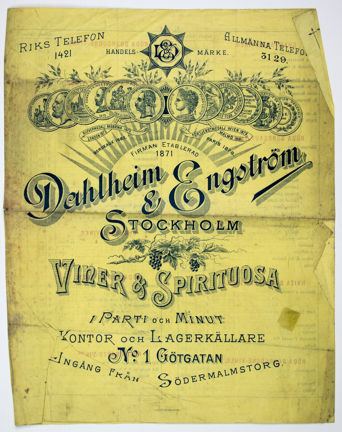 RIKS TELEFON
1421
HANDELS-
MÄRKE.
ALLMÄNNA TELEFON
3129.
FIRMAN ETABLERAD
1871
Dahlheim
& Engström
STOCKHOLM
VINER & SPIRITUOSA
I PARTI OCH MINUT
KONTOR OCH LAGERKÄLLARE
No 1 GÖTGATAN
INGÅNG FRÅN SÖDERMALMSTORG.